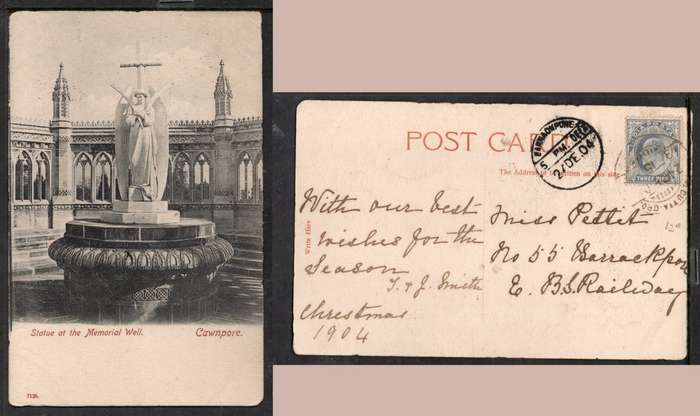 Statue at the Memorial Well. Cawnpore.
7128.
POST CARD
The Address only to be written on this side.
Write Here
5 PM
2/DE.04
THREE PIES
With our best
wishes for the
Season
T. & J. Smith
Christmas
1904
Miss Pettit
No 55 Barrackpore
E. B. S. Railway